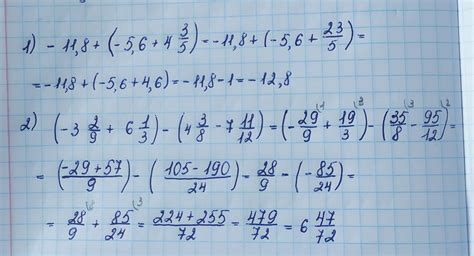 1) - 11,8 + (-5,6 + 4 3/5) = -11,8 + (-5,6 + 23/5) =
= -11,8 + (-5,6 + 4,6) = -11,8 - 1 = -12,8
2) (-3 2/9 + 6 1/3) - (4 3/8 - 7 11/12) = (-29/9 (1 + 19/3 (3) - (35/8 (3 - 95/12 (2) =
= ((-29+57)/9) - ((105-190)/24) = 28/9 - (-85/24) =
= 28/9 (8 + 85/24 (3 = (224+255)/72 = 479/72 = 6 47/72